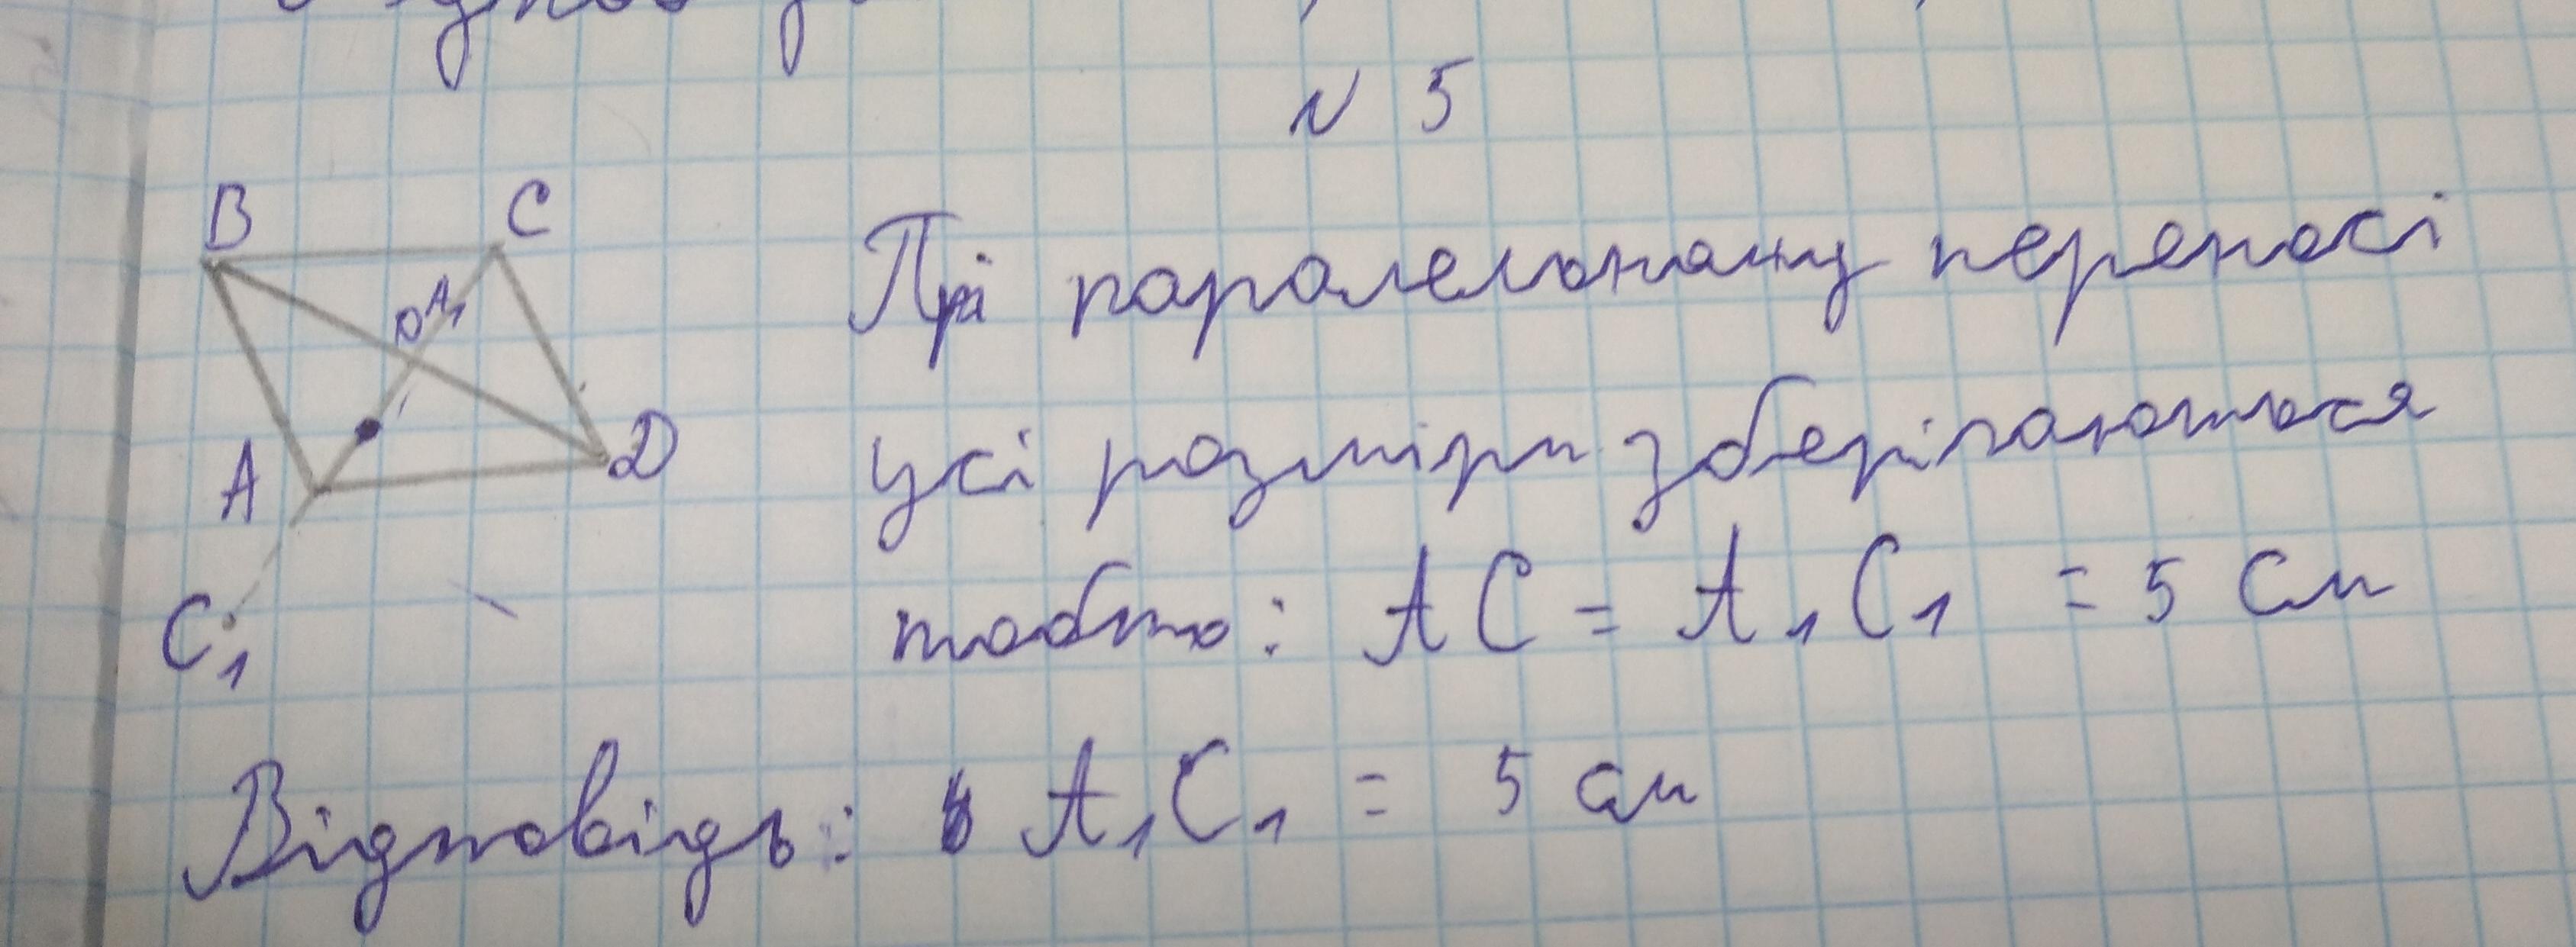 N 5
B C
O A1
A D
C1
Прі паралельному переносі
усі розміри зберігаються
тобто: AC = A1C1 = 5 см
Відповідь: A1C1 = 5 см